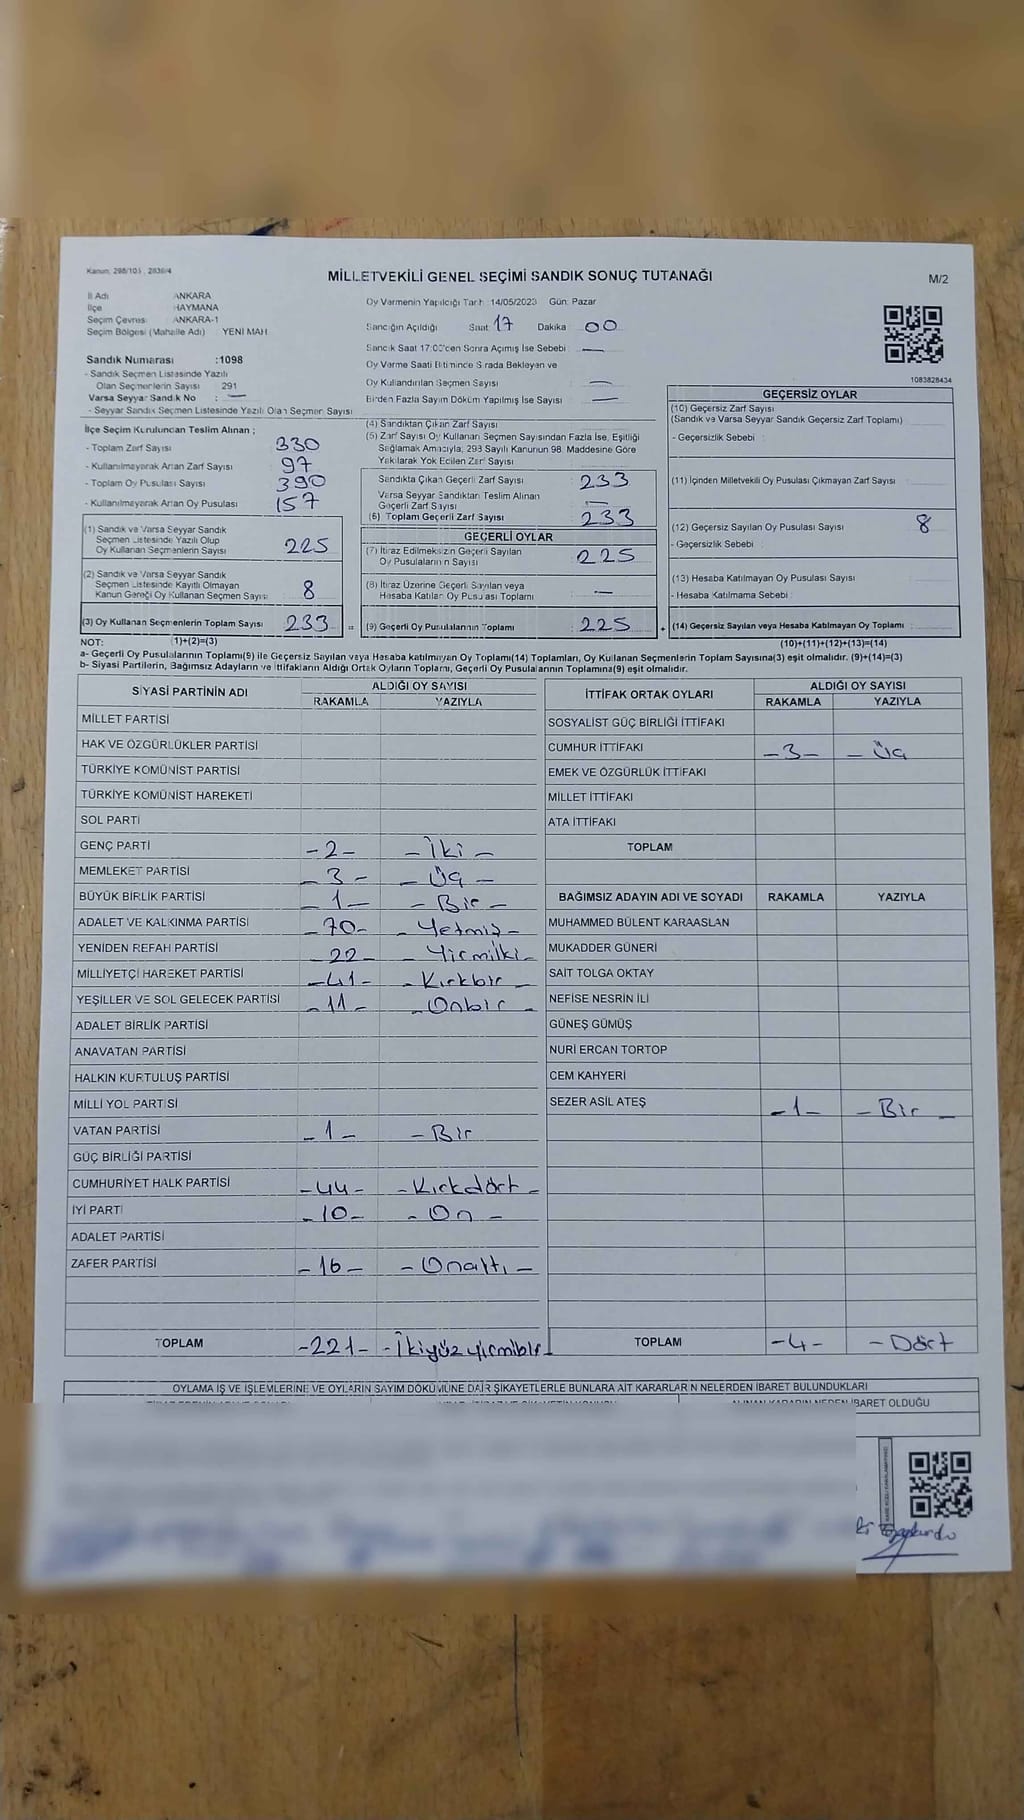 Kanun: 298/105 , 2839/4
MİLLETVEKİLİ GENEL SEÇİMİ SANDIK SONUÇ TUTANAĞI
M/2
İl Adı ANKARA
İlçe HAYMANA
Seçim Çevresi ANKARA-1
Seçim Bölgesi (Mahalle Adı) YENİ MAH
Sandık Numarası :1098
- Sandık Seçmen Listesinde Yazılı
Olan Seçmenlerin Sayısı 291
Varsa Seyyar Sandık No : —
- Seyyar Sandık Seçmen Listesinde Yazılı Olan Seçmen Sayısı
Oy Vermenin Yapıldığı Tarih :14/05/2023 Gün: Pazar
Sandığın Açıldığı Saat 17 Dakika 00
Sandık Saat 17:00'den Sonra Açımış İse Sebebi : —
Oy Verme Saati Bitiminde Sırada Bekleyen ve
Oy Kullandırılan Seçmen Sayısı —
Birden Fazla Sayım Döküm Yapılmış İse Sayısı —
1083828434
İlçe Seçim Kurulundan Teslim Alınan ;
- Toplam Zarf Sayısı 330
- Kullanılmayarak Artan Zarf Sayısı 97
- Toplam Oy Pusulası Sayısı 390
- Kullanılmayarak Artan Oy Pusulası 157
(1) Sandık ve Varsa Seyyar Sandık
Seçmen Listesinde Yazılı Olup
Oy Kullanan Seçmenlerin Sayısı 225
(2) Sandık ve Varsa Seyyar Sandık
Seçmen Listesinde Kayıtlı Olmayan
Kanun Gereği Oy Kullanan Seçmen Sayısı 8
(3) Oy Kullanan Seçmenlerin Toplam Sayısı 233 =
(4) Sandıktan Çıkan Zarf Sayısı
(5) Zarf Sayısı Oy Kullanan Seçmen Sayısından Fazla İse, Eşitliği
Sağlamak Amacıyla, 298 Sayılı Kanunun 98. Maddesine Göre
Yakılarak Yok Edilen Zarf Sayısı
Sandıkta Çıkan Geçerli Zarf Sayısı 233
Varsa Seyyar Sandıktan Teslim Alınan
Geçerli Zarf Sayısı —
(6) Toplam Geçerli Zarf Sayısı 233
GEÇERLİ OYLAR
(7) İtiraz Edilmeksizin Geçerli Sayılan
Oy Pusulalarının Sayısı 225
(8) İtiraz Üzerine Geçerli Sayılan veya
Hesaba Katılan Oy Pusulası Toplamı —
(9) Geçerli Oy Pusulalarının Toplamı 225 +
GEÇERSİZ OYLAR
(10) Geçersiz Zarf Sayısı
(Sandık ve Varsa Seyyar Sandık Geçersiz Zarf Toplamı)
- Geçersizlik Sebebi :
(11) İçinden Milletvekili Oy Pusulası Çıkmayan Zarf Sayısı :
(12) Geçersiz Sayılan Oy Pusulası Sayısı 8
- Geçersizlik Sebebi :
(13) Hesaba Katılmayan Oy Pusulası Sayısı
- Hesaba Katılmama Sebebi :
(14) Geçersiz Sayılan veya Hesaba Katılmayan Oy Toplamı :
NOT: 1)+(2)=(3) (10)+(11)+(12)+(13)=(14)
a- Geçerli Oy Pusulalarının Toplamı(9) ile Geçersiz Sayılan veya Hesaba katılmayan Oy Toplamı(14) Toplamları, Oy Kullanan Seçmenlerin Toplam Sayısına(3) eşit olmalıdır. (9)+(14)=(3)
b- Siyasi Partilerin, Bağımsız Adayların ve İttifakların Aldığı Ortak Oyların Toplamı, Geçerli Oy Pusulalarının Toplamına(9) eşit olmalıdır.
SİYASİ PARTİNİN ADI ALDIĞI OY SAYISI
RAKAMLA YAZIYLA
MİLLET PARTİSİ
HAK VE ÖZGÜRLÜKLER PARTİSİ
TÜRKİYE KOMÜNİST PARTİSİ
TÜRKİYE KOMÜNİST HAREKETİ
SOL PARTİ
GENÇ PARTİ -2- - İki -
MEMLEKET PARTİSİ - 3 - - Üç -
BÜYÜK BİRLİK PARTİSİ - 1 - - Bir -
ADALET VE KALKINMA PARTİSİ - 70 - - Yetmiş -
YENİDEN REFAH PARTİSİ - 22 - - Yirmiİki -
MİLLİYETÇİ HAREKET PARTİSİ - 41 - - Kırkbir -
YEŞİLLER VE SOL GELECEK PARTİSİ - 11 - - Onbir -
ADALET BİRLİK PARTİSİ
ANAVATAN PARTİSİ
HALKIN KURTULUŞ PARTİSİ
MİLLİ YOL PARTİSİ
VATAN PARTİSİ - 1 - - Bir
GÜÇ BİRLİĞİ PARTİSİ
CUMHURİYET HALK PARTİSİ - 44 - - Kırkdört -
İYİ PARTİ - 10 - - On -
ADALET PARTİSİ
ZAFER PARTİSİ - 16 - - Onaltı -
TOPLAM -221- - İkiyüzyirmibir -
İTTİFAK ORTAK OYLARI ALDIĞI OY SAYISI
RAKAMLA YAZIYLA
SOSYALİST GÜÇ BİRLİĞİ İTTİFAKI
CUMHUR İTTİFAKI - 3 - - Üç
EMEK VE ÖZGÜRLÜK İTTİFAKI
MİLLET İTTİFAKI
ATA İTTİFAKI
TOPLAM
BAĞIMSIZ ADAYIN ADI VE SOYADI RAKAMLA YAZIYLA
MUHAMMED BÜLENT KARAASLAN
MUKADDER GÜNERİ
SAİT TOLGA OKTAY
NEFİSE NESRİN İLİ
GÜNEŞ GÜMÜŞ
NURİ ERCAN TORTOP
CEM KAHYERİ
SEZER ASİL ATEŞ - 1 - - Bir -
TOPLAM - 4 - - Dört
OYLAMA İŞ VE İŞLEMLERİNE VE OYLARIN SAYIM DÖKÜMÜNE DAİR ŞİKAYETLERLE BUNLARA AİT KARARLARIN NELERDEN İBARET BULUNDUKLARI
ALINAN KARARIN NEDEN İBARET OLDUĞU